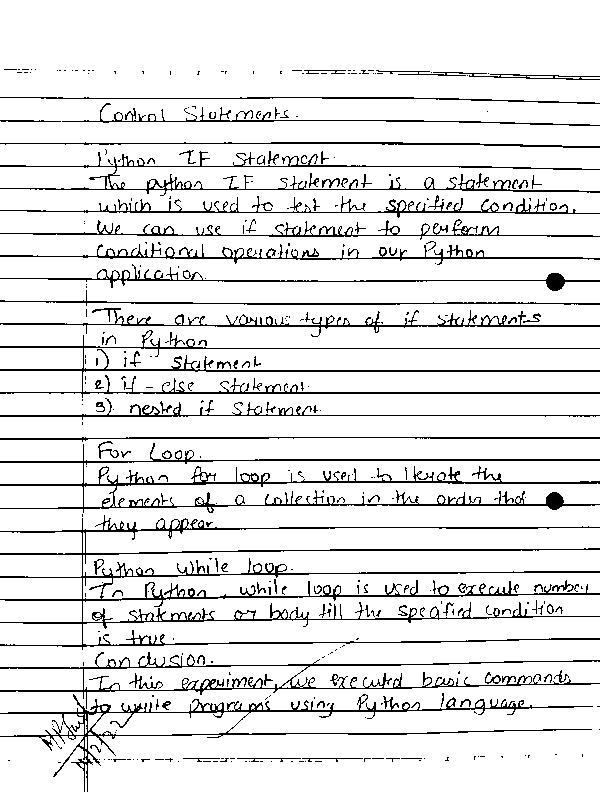 Control Statements.
Python IF Statement.
The python IF statement is a statement
which is used to test the specified condition.
We can use if statement to perform
conditional operations in our Python
application.
There are various types of if statements
in Python
1) if statement
2) if-else statement.
3) nested if statement.
For Loop.
Python for loop is used to iterate the
elements of a collection in the order that
they appear.
Python while loop.
In Python, while loop is used to execute number
of statements or body till the specified condition
is true.
Conclusion.
In this experiment, we executed basic commands
to write programs using Python language.